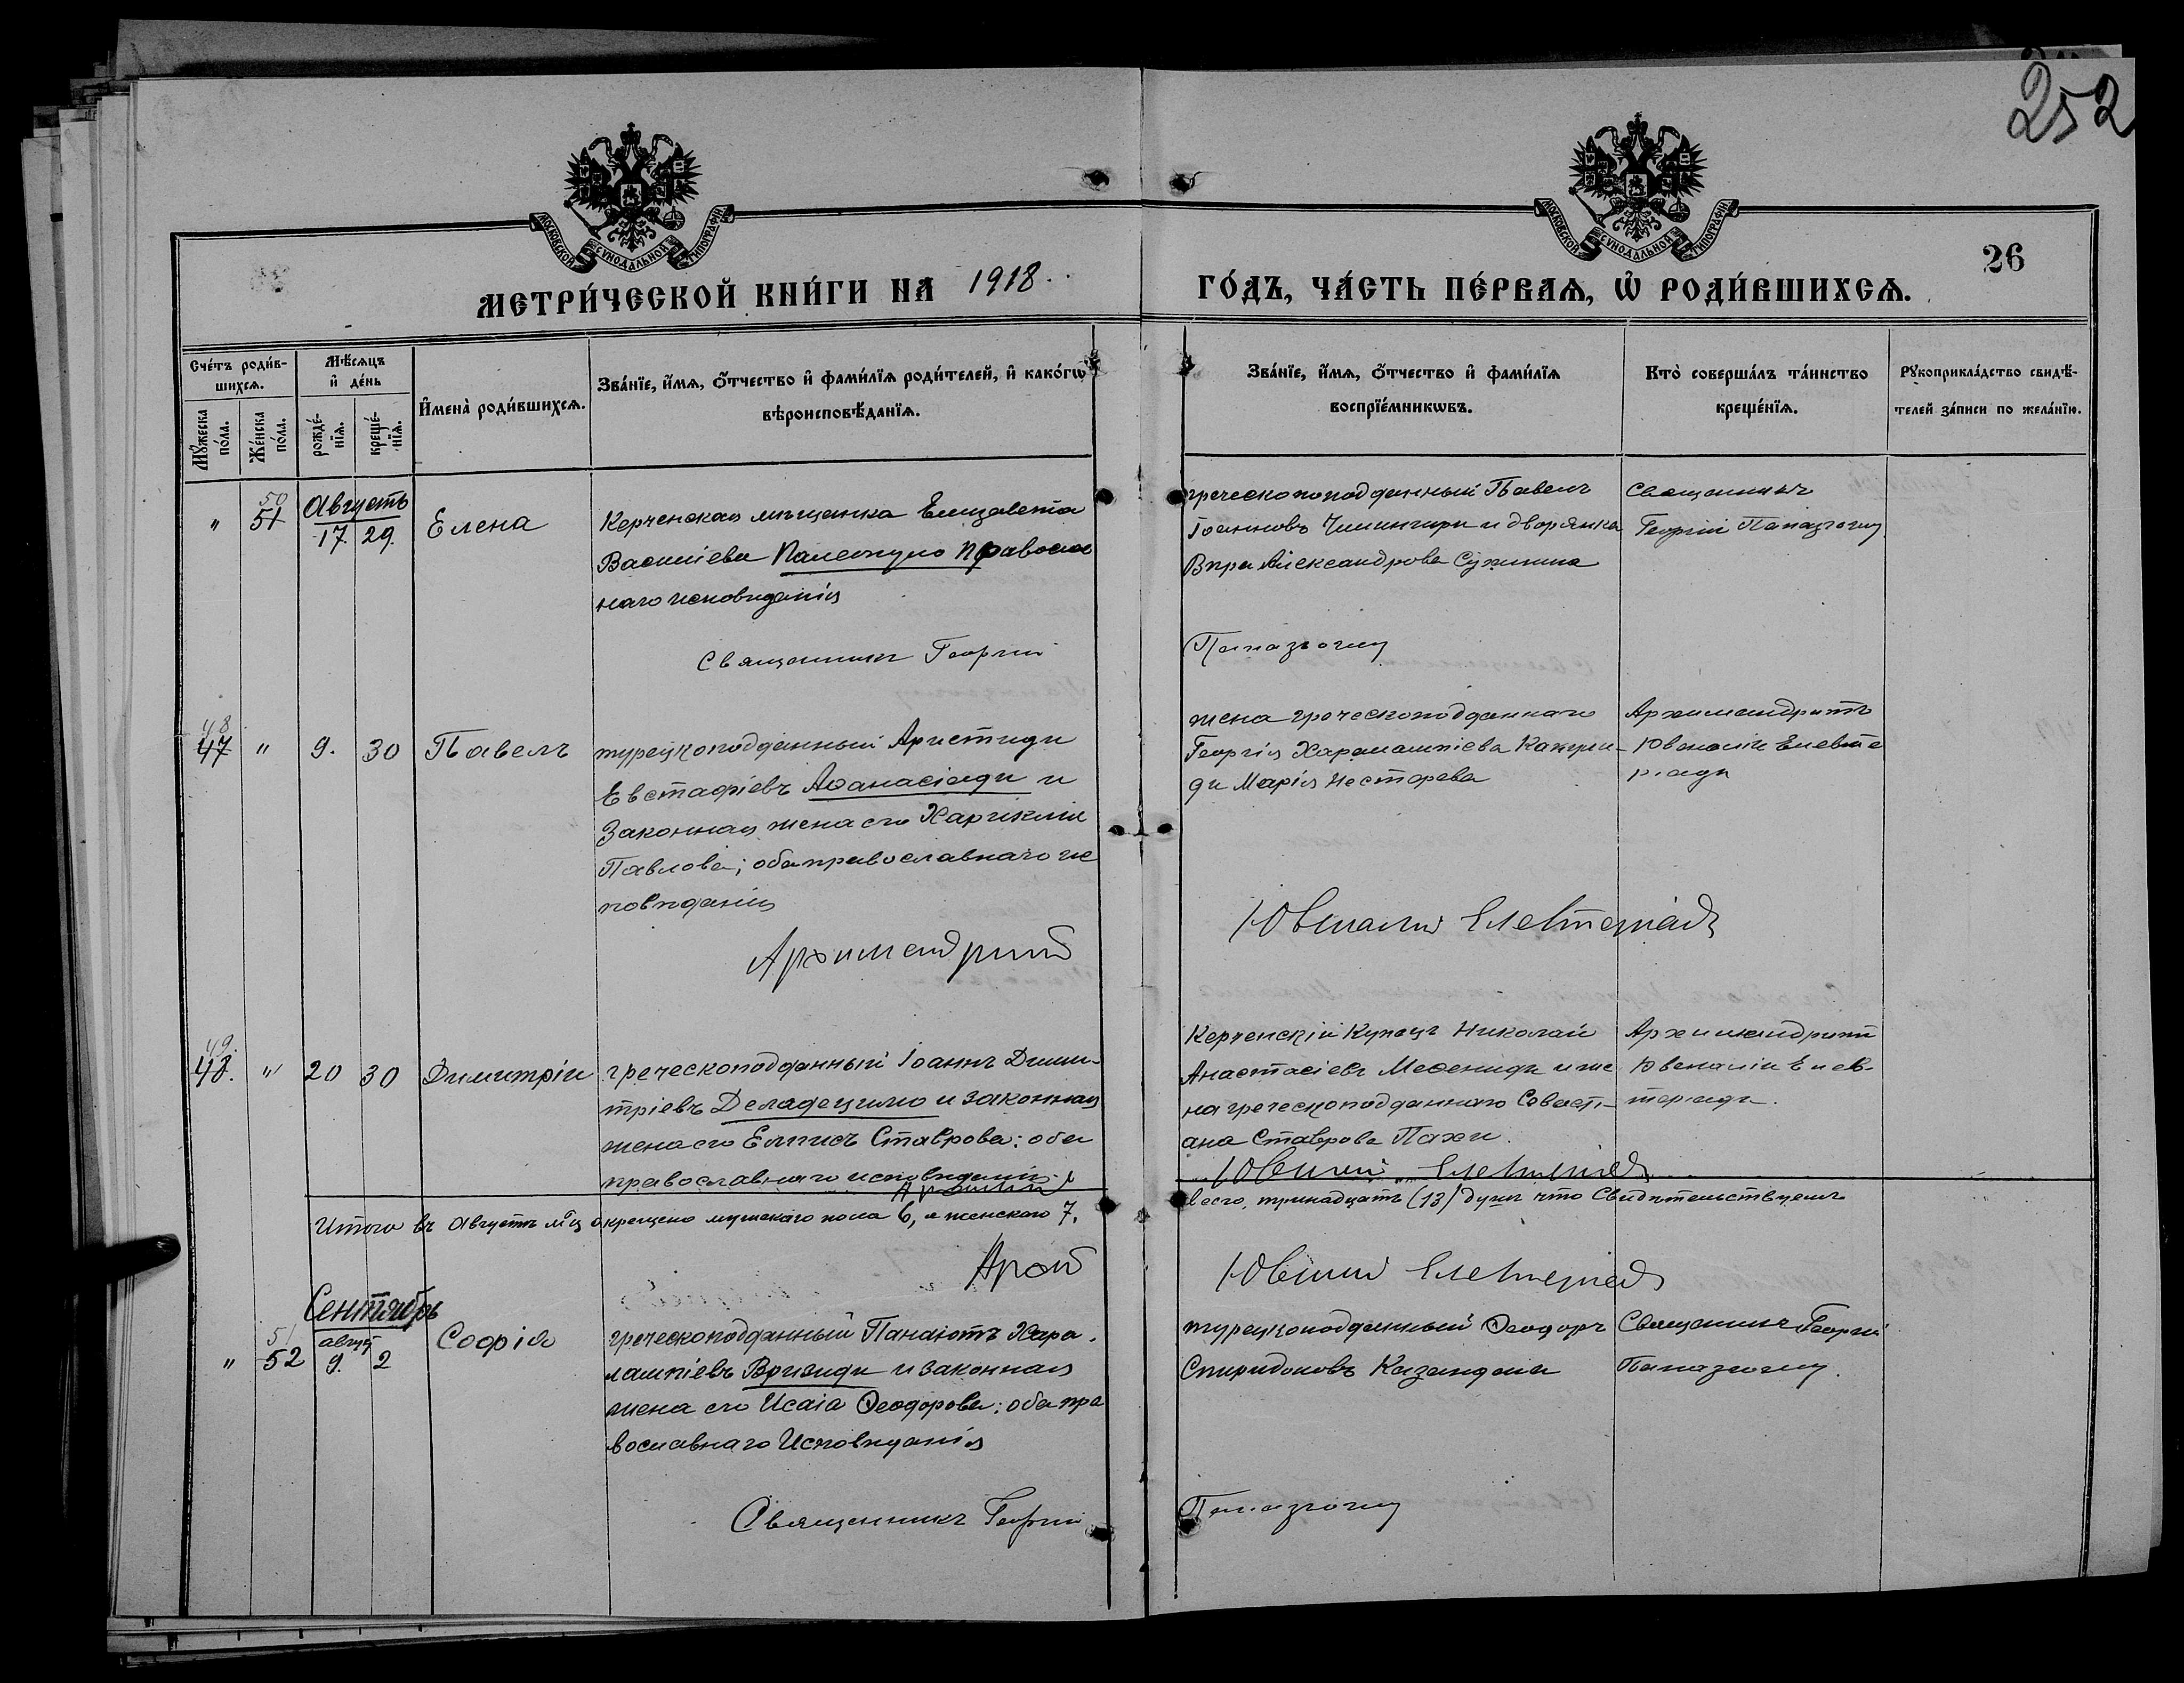 252
МОСКОВСКОЙ СѴНОДАЛЬНОЙ ТИПОГРАФІИ
МОСКОВСКОЙ СѴНОДАЛЬНОЙ ТИПОГРАФІИ
26
МЕТРИ́ЧЕСКОЙ КНИ́ГИ НА 1918. ГО́ДЪ, ЧА́СТЬ ПЕ́РВАѦ, Ѽ РОДИ́ВШИХСѦ.
Сче́тъ роди́в-
шихсѧ.
Мꙋ́жеска по́ла.
Же́нска по́ла.
Мѣ́сѧцъ
и҆ де́нь
рожде́-
нїѧ.
креще́-
нїѧ.
И҆мена̀ роди́вшихсѧ.
Зва́нїе, и҆́мѧ, ѻ҆́тчество и҆ фами́лїѧ роди́телей, и҆ како́гѡ
вѣроисповѣ́данїѧ.
Зва́нїе, и҆́мѧ, ѻ҆́тчество и҆ фами́лїѧ
воспрїе́мникѡвъ.
Кто̀ соверша́лъ та́инство
креще́нїѧ.
Рꙋкоприкла́дство свидѣ́-
телей за́писи по жела́нїю.
" 50 51 Августъ 17. 29. Елена
Керченская мѣщанка Елизавета
Василіева православ
наго исповѣданія
Священникъ Георгій
греческоподданный Павелъ
Іоанновъ Чилингири и дворянка
Вѣра Александрова Сухинина
Папазоглу
Священникъ
Георгій Папазоглу
48 47 " 9. 30 Павелъ
турецкоподданный Аристиди
Евстафіевъ Аѳанасіади и
законная жена его Хариклія
Павлова; оба православнаго ис
повѣданія
Архимандритъ
жена греческоподданнаго
Георгія Харалампіева
ди Марія Несторова
Ювеналій Елевтеріадъ
Архимандритъ
Ювеналій Елевте
ріади
49. 48. " 20 30 Димитрій
греческоподданный Іоаннъ Дими-
тріевъ Деладецимо и законная
жена его Елписъ Ставрова: оба
православнаго исповѣданія
Керченскій Купецъ Николай
Анастасіевъ Месениди и же
на греческоподданнаго Севасті-
ана Ставрова Пахи.
Ювеналій Елевтеріадъ
Архимандритъ
Ювеналій Елев-
теріади.
Итого въ Августѣ м-цѣ окрещено мужескаго пола 6, а женскаго 7.
всего, тринадцать (13) душъ что Свидѣтельствуемъ
Ювеналій Елевтеріадъ
Сентябрь
" 51 52 авгус 9. 2 Софія
греческоподданный Панаіотъ Хара-
лампіевъ Вризиди и законная
жена его Исаія Ѳеодорова: оба пра
вославнаго Исповѣданія
Священникъ Георгій
турецкоподданный Ѳеодоръ
Спиридоновъ
Папазоглу
Священникъ Георгій
Папазоглу.